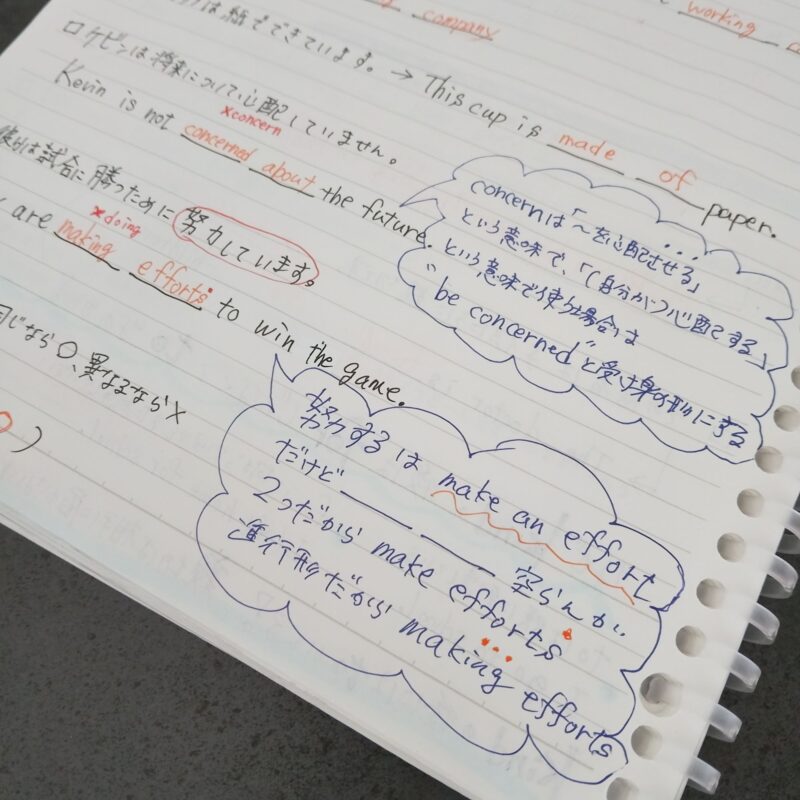 company
working
は紙でできています。→ This cup is made of paper.
ロケビンは将来について心配していません。
×concern
Kevin is not concerned about the future.
は試合に勝つために努力しています。
×doing
are making efforts to win the game.
同じなら○、異なるなら×
○)
concernは「〜を心配させる」
という意味で、「(自分が〜)心配する」
という意味で使う場合は
"be concerned"と受け身の形にする
努力する は make an effort
だけど ＿＿ ＿＿ 空らんが
2つだから make efforts
進行形だから making efforts